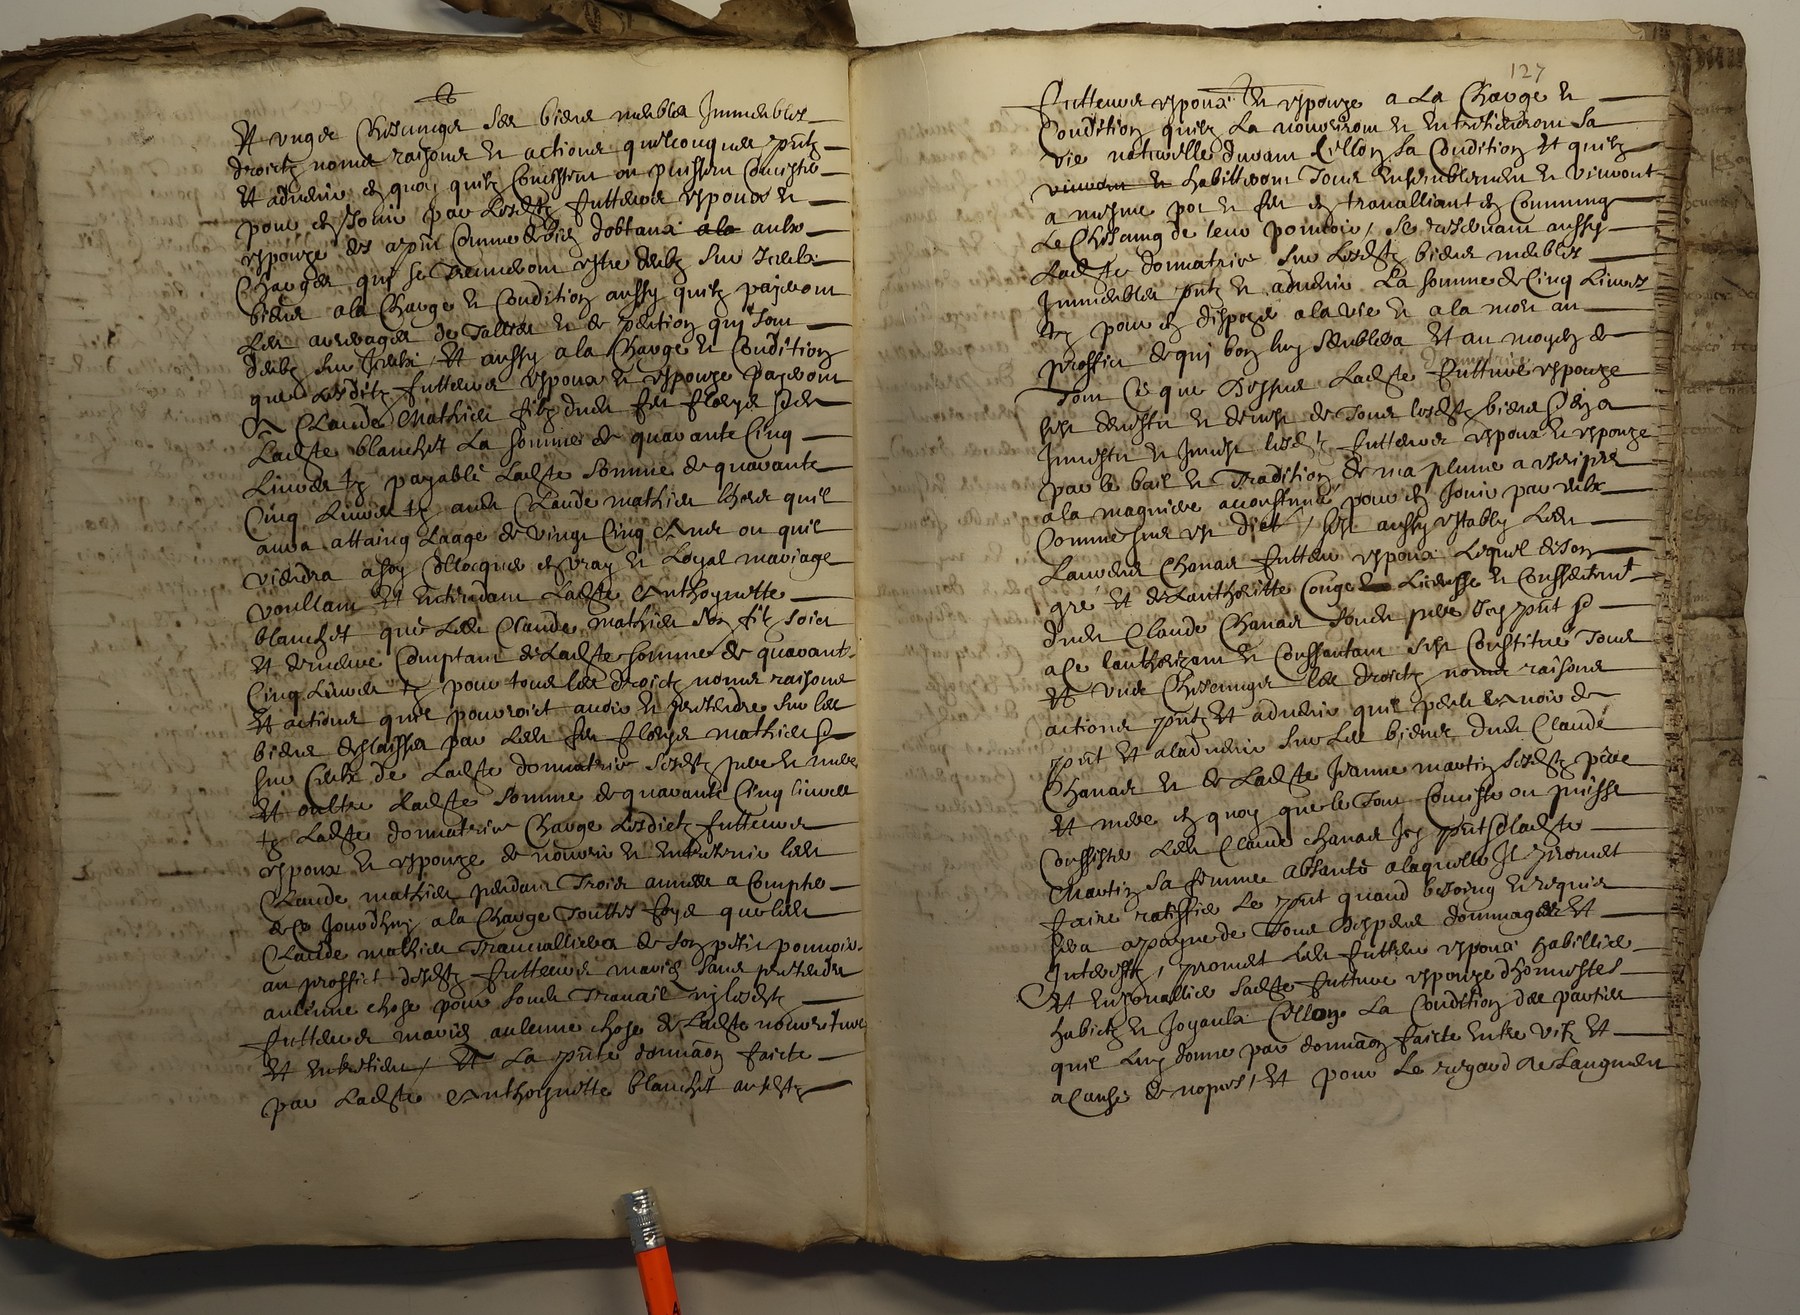 Et ungs Chescungs ses biens meubles Immeubles
droictz noms raisons et actions quelconques pntz
Et advenir et quoy quilz Concistent ou puissent Concister
pour en Jouir par lesdtz futteurs espoux et
espouze des apnt Comme de bien dobtaux aulx
Charges qui se treuveront estre deubz sur Iceulx
biens a la Charge et Condition aussy quilz payeront
les arrerages de Tailles et de pention qui sont
deubz sur Iceulx, Et aussy a la Charge et Condition
que lesditz futteurs espoux et espouze payeront
A Claude Mathieu filz dudt feu Fleurys
Ladte blanchet La somme de quarante Cinq
Livres tz payable Ladte somme de quarante
Cinq Livres tz audt Claude mathieu lhors quil
aura attaing Laage de vingt Cinq Ans ou quil
viendra a soy Collocquer en vray et Loyal mariage
voullant Et Entendant Ladte Anthoynette
blanchet que Ledt Claude mathieu son filz soict
Et demeure Comptant de Ladte somme de quarante
Cinq Livres tz pour tous les droictz noms raisons
Et actions quil pourroict avoir et prettendre sur les
biens dellaisses par Ledt feu Fleurys mathieu
sur Ceulx de Ladte donnatrix sesdtz pere et mere
Et oultre Ladte somme de quarante Cinq livres
tz Ladte donnatrix Charge Lesdictz futteurs
espoux et espouze de nourir et entretenir ledt
Claude mathieu pendant Trois annees a Compter
de Ce Jourdhuy a la Charge Touttes foys que ledt
Claude mathieu Travailliera de son petit pouvoir
au proffict desdtz futteurs mariez sans prettendre
aulcune chose pour sondt Travail ny lesdtz
futteurs mariez aulcune chose de Ladte nourriture
Et Entretien, Et La pnte donnaon faicte
par Ladte Anthoynette blanchet ausdtz
127
futteurs espoux et espouze a La Charge et
Condition quilz La nouriront et Entretiendront sa
vie naturelle durant Cellon sa Condition Et quilz
vivront et habitteront Tous Ensemblement et vivront
a mesme pot et feu en travalliant en Commung
Le Chescung de leur pouvoir, Se reservant aussy
Ladte donnatrix sur lesdtz biens meubles
Immeubles pntz et advenir La somme de Cinq Livres
tz pour en dispozer a la vie et a la mort au
proffict de qui bon luy semblera Et au moyen de
Tout Ce que Dessus Ladte futture espouze
sest devestu et demise de Tous lesdtz biens Et en a
Investu et Invest lesdtz futteurs espoux et espouze
par le bail et Tradition de ma plume a escripre
a la magniere accoustumée pour en Jouir par eulx
Comme sus est dict, sest aussy estably Ledt
Laurens Chanard futteur espoux Lequel de son
gré Et de Lauthoritte Congé Licensse et Conssentemt
dudt Claude Chanard sondt pere Icy pnt
a Ce lauthorizant et Conssantant sest Constitué Tous
Et ungs Chescungs les droictz noms raisons
actions pntz Et advenir quil peult Avoir de
pnt Et a ladvenir sur Les biens dudt Claude
Chanard et de Ladte Jeanne martin sesdtz pere
Et mere en quoy que le Tout Conciste ou puisse
Conssister Ledt Claude chanard Icy pnt Ladte
Martin sa femme absante a laquelle Il promet
faire ratiffier Le pnt quand besoing et requis
sera a payne de Tous despens dommages Et
Interestz, promet Ledt futteur espoux habillier
Et Enjouallier Ladte futture espouze dhonnestes
habictz et Joyaulx Cellon La Condition des parties
quil Luy donne par donnaon faicte Entre vifz Et
a Cause de nopces, Et pour Le regard de Laugment